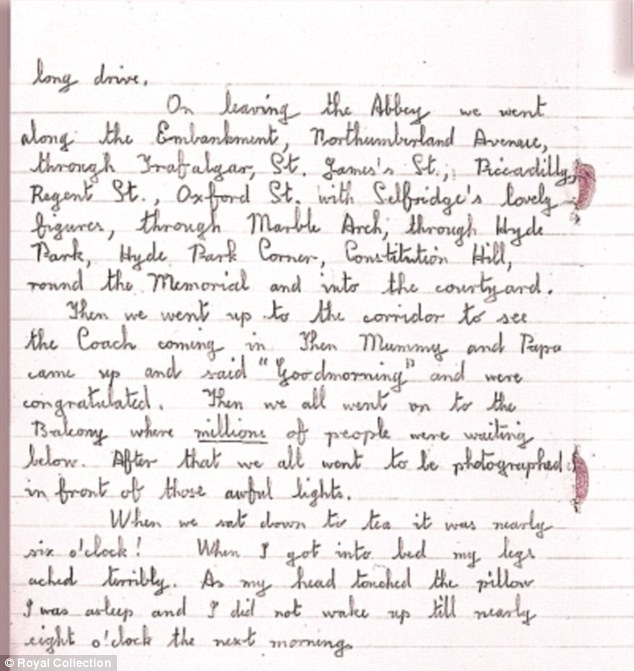 long drive.
On leaving the Abbey we went
along the Embankment, Northumberland Avenue,
through Trafalgar, St. James's St., Piccadilly,
Regent St., Oxford St. with Selfridge's lovely
figures, through Marble Arch, through Hyde
Park, Hyde Park Corner, Constitution Hill,
round the Memorial and into the courtyard.
Then we went up to the corridor to see
the Coach coming in Then Mummy and Papa
came up and said "Goodmorning" and were
congratulated. Then we all went on to the
Balcony where millions of people were waiting
below. After that we all went to be photographed
in front of those awful lights.
When we sat down to tea it was nearly
six o'clock! When I got into bed my legs
ached terribly. As my head touched the pillow
I was asleep and I did not wake up till nearly
eight o'clock the next morning.
© Royal Collection